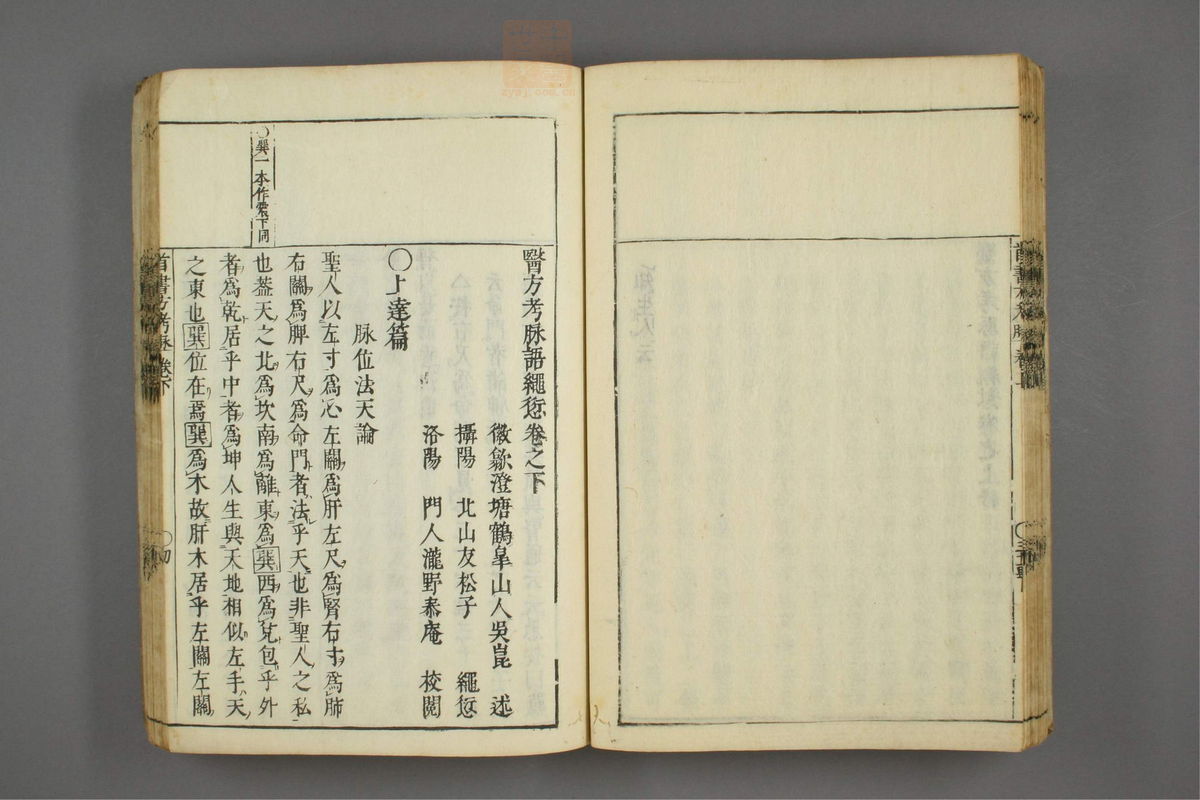 醫方考脉語繩愆卷之下
徽歙澄塘鶴皐山人吳崑 述
攝陽 北山友松子 繩愆
洛陽 門人瀧野泰庵 校閱
〇上達篇
脉位法天論
聖人以左寸爲心左關爲肝左尺爲腎右寸爲肺
右關爲脾右尺爲命門者法乎天也非聖人之私
也葢天之北爲坎南爲離東爲巽西爲兌包乎外
者爲乾居乎中者爲坤人生與天地相似左手天
之東也巽位在焉巽爲木故肝木居乎左關左關
〇巽一本作震下同
首書方考脉 卷下
〇初
zysj.com.cn